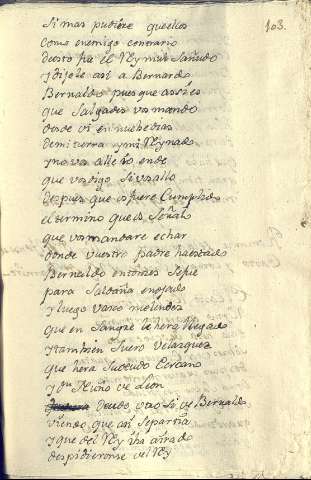 103.
si mas pudiere que ellos
como enemigo contrario
desto ha el Rey muy sañudo
y dijole asi a Bernardo
Bernaldo pues que assi es
que salgades vos mando
desde oi en nuebe dias
de mi tierra y mi Reynado
y no vos alle io ende
que vos digo si vos allo
despues que os fuere cumplido
el termino que os señalo
que vos mandare echar
donde vuestro padre ha estado
Bernaldo entonzes se fue
para Saldaña enojado
y luego vasco melendez
que en sangre le hera llegado
y tambien suero Velazquez
que hera su deudo cercano
y don Nuño de Leon
deudo, otro si de Bernaldo
viendo que asi se partia
y que del Rey iba airado
despidieronse del Rey